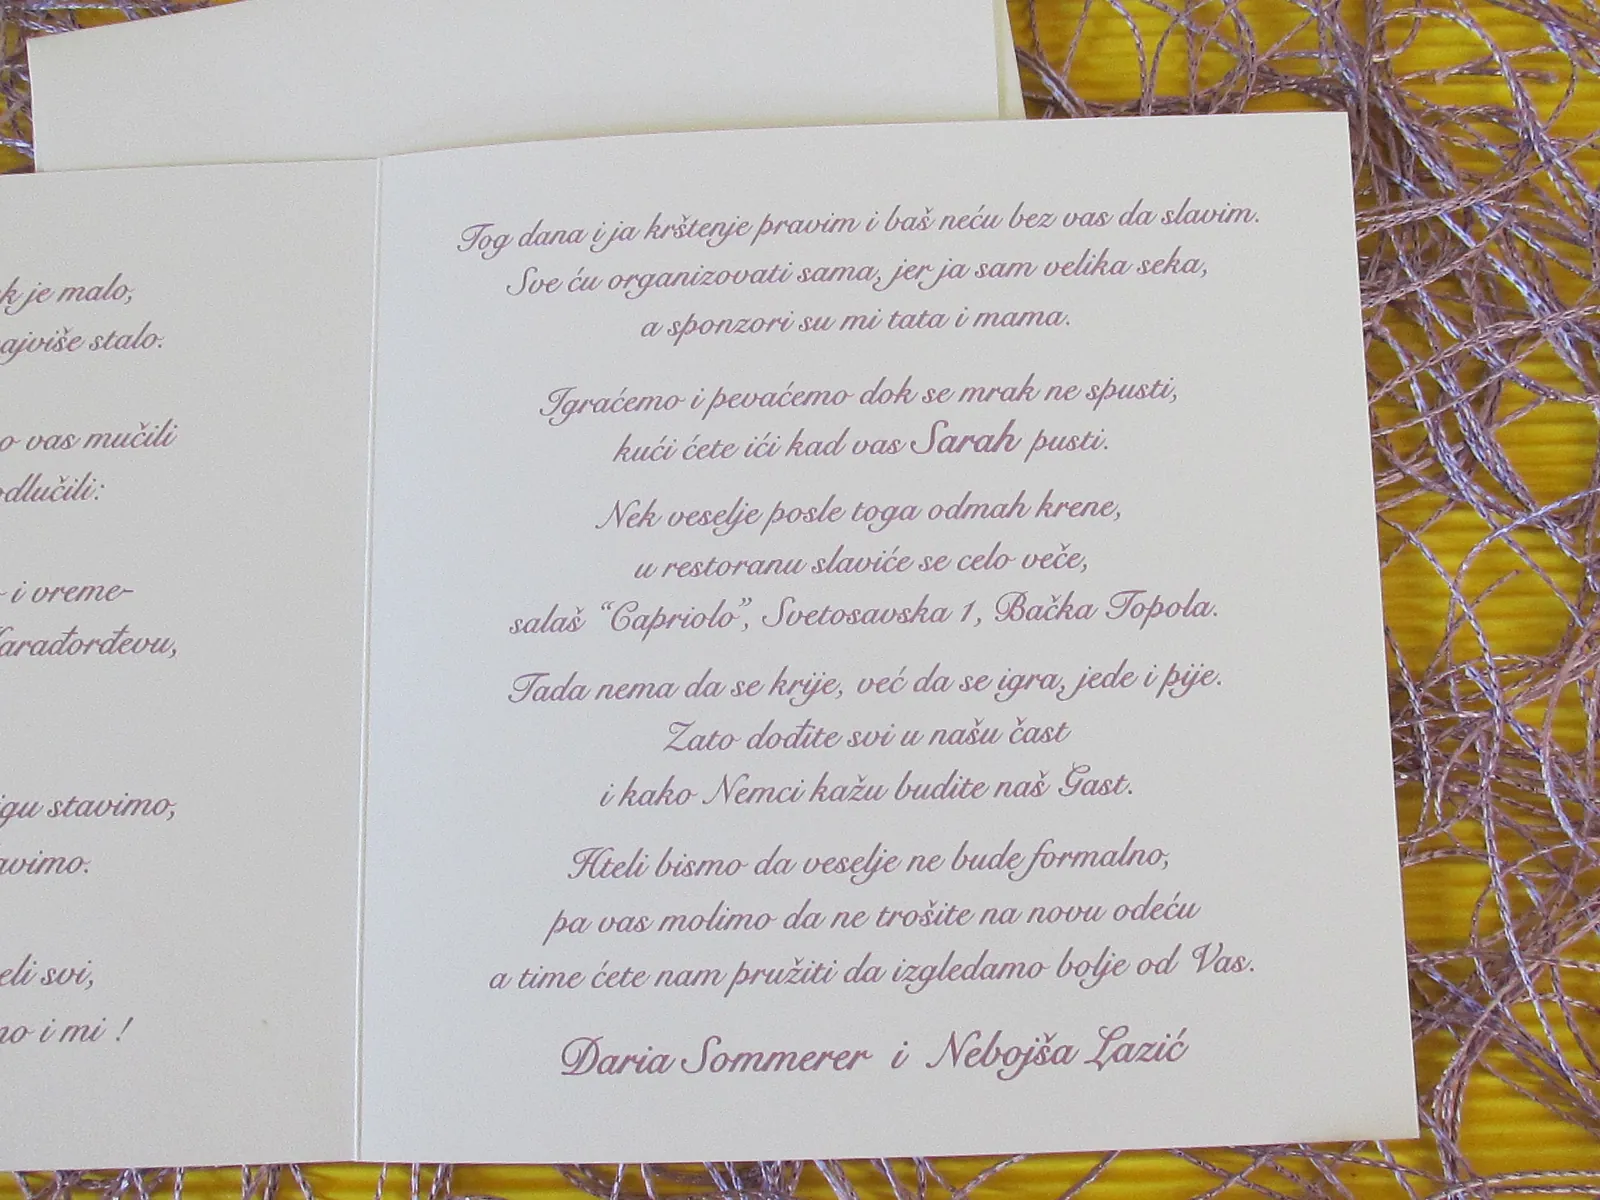 je malo,
stalo.
vas mučili
i vreme-
stavimo,
svi,
i mi !
Tog dana i ja krštenje pravim i baš neću bez vas da slavim.
Sve ću organizovati sama, jer ja sam velika seka,
a sponzori su mi tata i mama.
Igraćemo i pevaćemo dok se mrak ne spusti,
kući ćete ići kad vas Sarah pusti.
Nek veselje posle toga odmah krene,
u restoranu slaviće se celo veče,
salaš “Capriolo”, Svetosavska 1, Bačka Topola.
Tada nema da se krije, već da se igra, jede i pije.
Zato dođite svi u našu čast
i kako Nemci kažu budite naš Gast.
Hteli bismo da veselje ne bude formalno,
pa vas molimo da ne trošite na novu odeću
a time ćete nam pružiti da izgledamo bolje od Vas.
Daria Sommerer i Nebojša Lazić